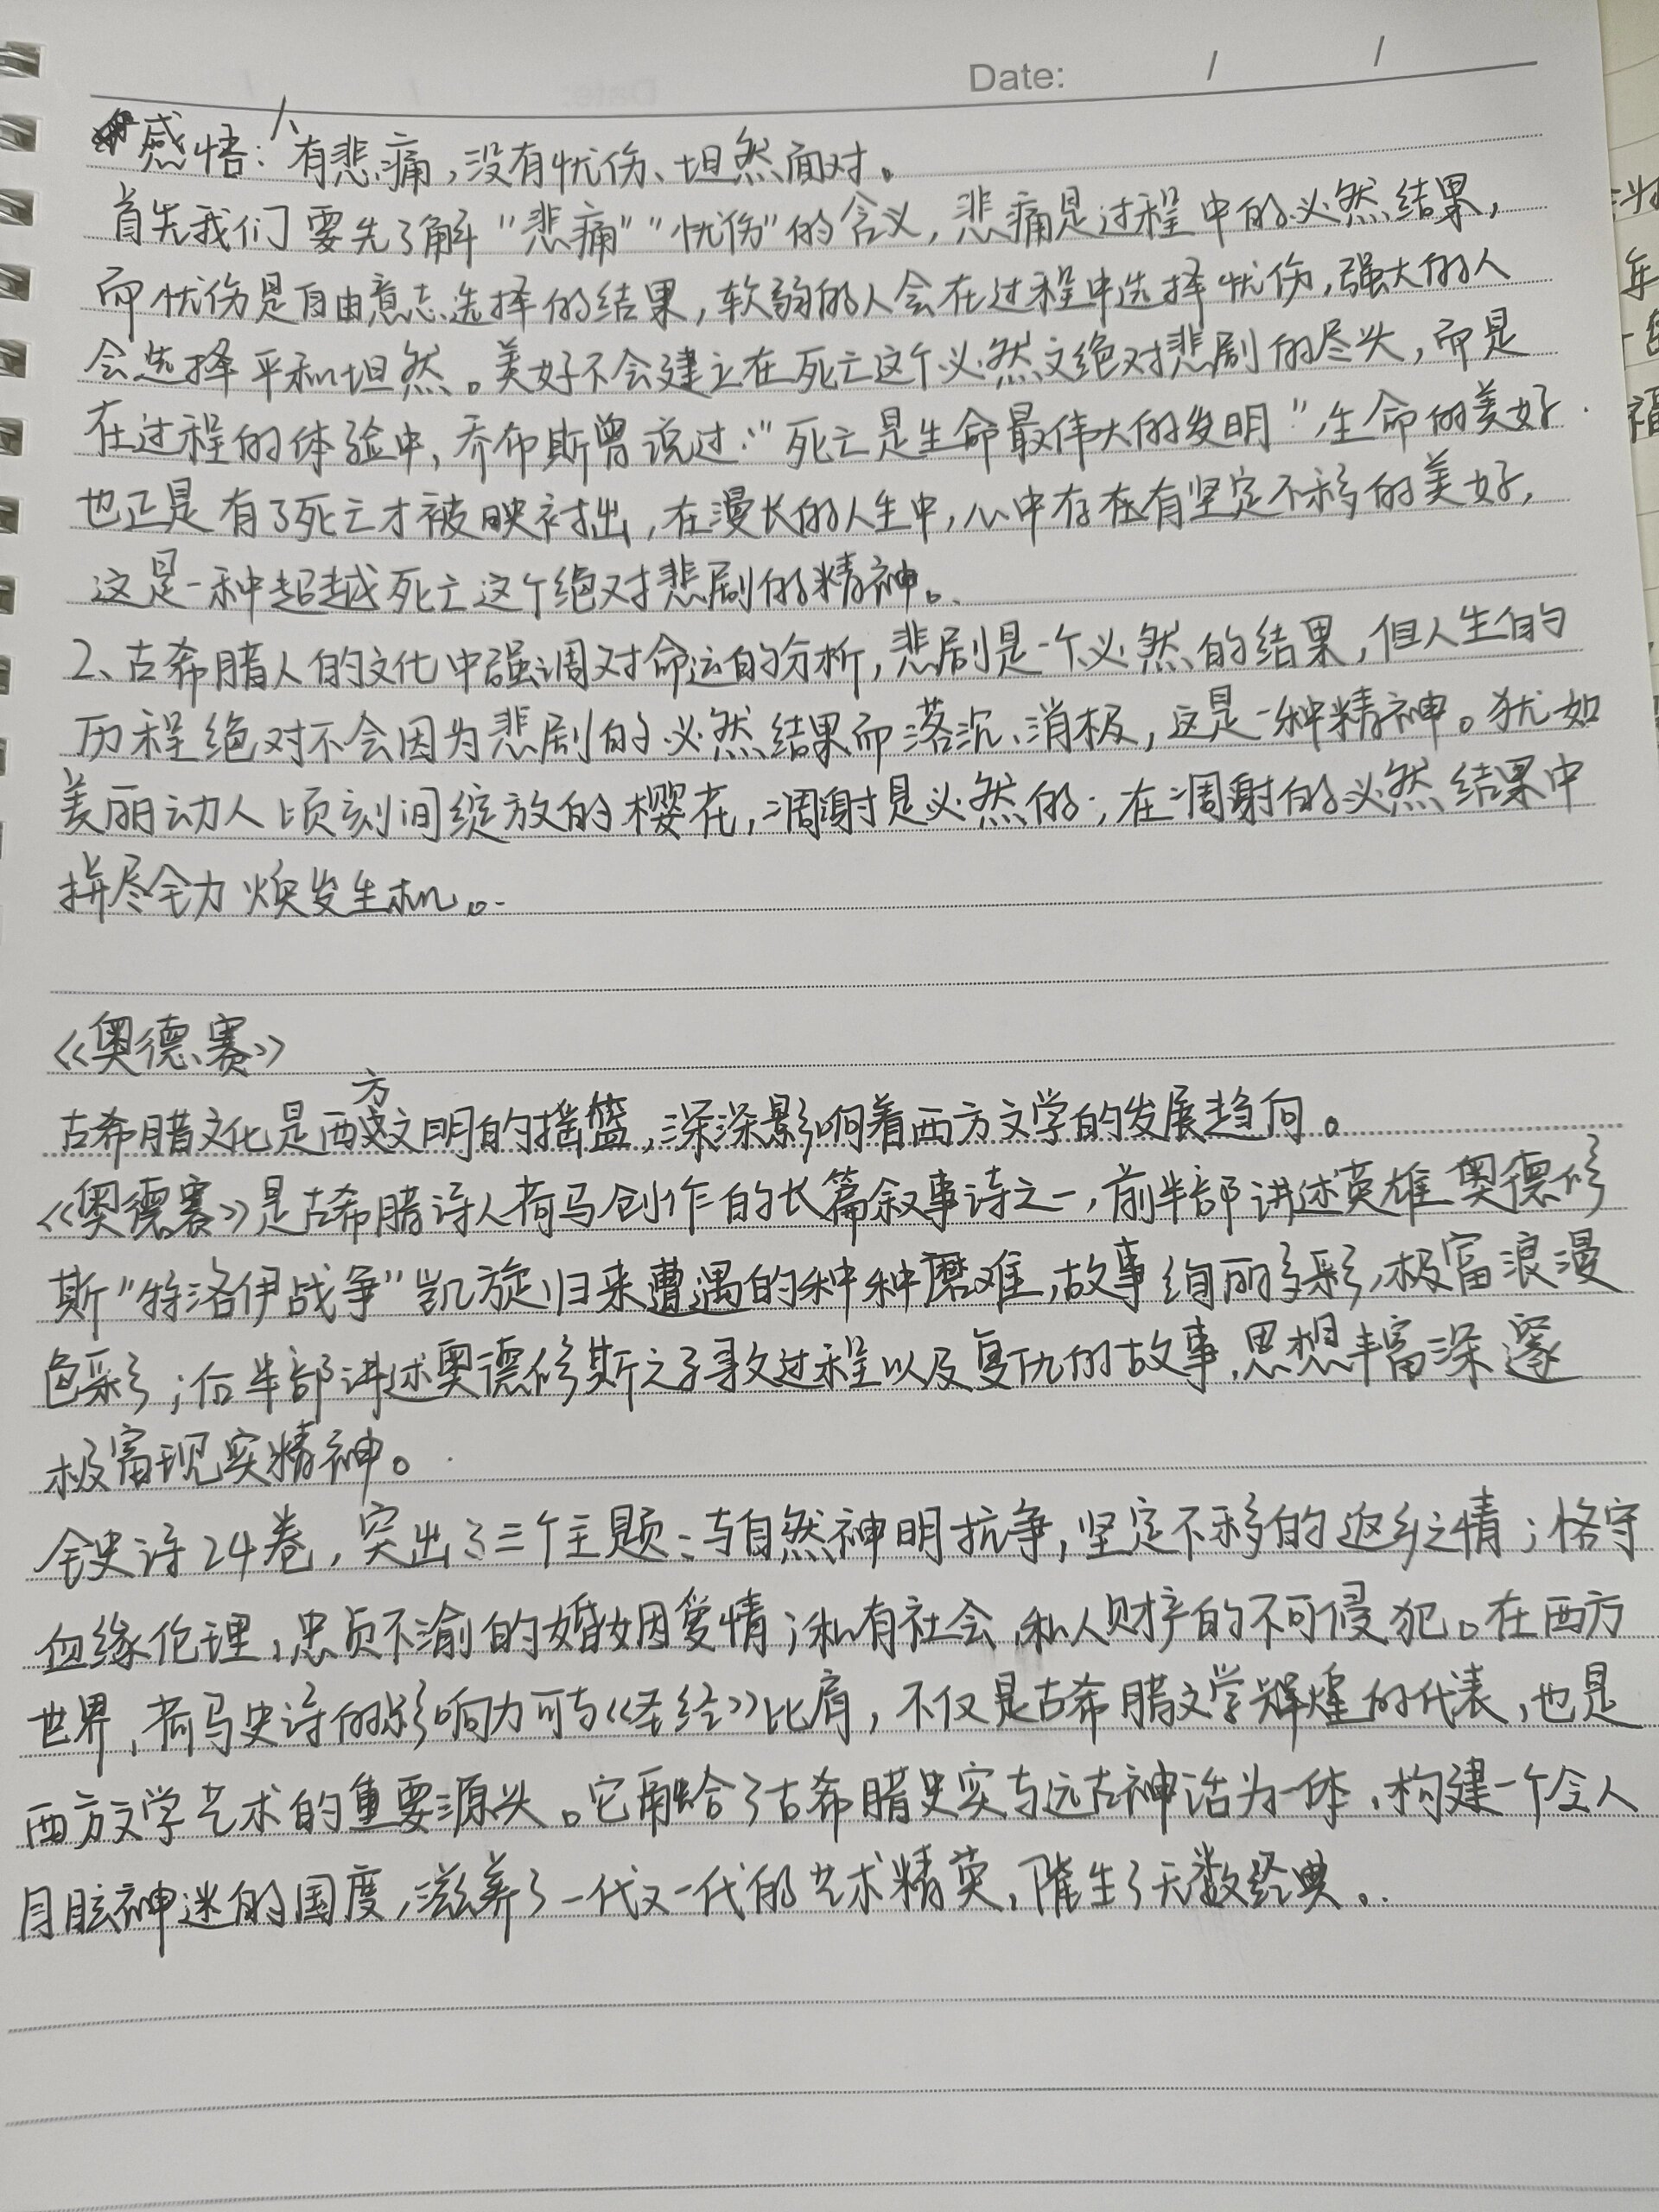 Date: / /
感悟：1、有悲痛，没有忧伤、坦然面对。
首先我们要先了解“悲痛”“忧伤”的含义，悲痛是过程中的必然结果，
而忧伤是自由意志选择的结果，软弱的人会在过程中选择忧伤，强大的人
会选择平和坦然。美好不会建立在死亡这个必然又绝对悲剧的尽头，而是
在过程的体验中，乔布斯曾说过：“死亡是生命最伟大的发明”，生命的美好
也正是有了死亡才被映衬出，在漫长的人生中，心中存在有坚定不移的美好，
这是一种超越死亡这个绝对悲剧的精神。
2、古希腊人的文化中强调对命运的分析，悲剧是一个必然的结果，但人生的
历程绝对不会因为悲剧的必然结果而落沉、消极，这是一种精神。犹如
美丽动人顷刻间绽放的樱花，凋谢是必然的；在凋谢的必然结果中
拼尽全力焕发生机。
《奥德赛》
古希腊文化是西方文明的摇篮，深深影响着西方文学的发展趋向。
《奥德赛》是古希腊诗人荷马创作的长篇叙事诗之一，前半部讲述英雄奥德修
斯“特洛伊战争”凯旋归来遭遇的种种磨难，故事绚丽多彩，极富浪漫
色彩；后半部讲述奥德修斯之子寻父过程以及复仇的故事，思想丰富深邃
极富现实精神。
全史诗24卷，突出了三个主题：与自然神明抗争，坚定不移的返乡之情；恪守
血缘伦理，忠贞不渝的婚姻爱情；私有社会，私人财产的不可侵犯。在西方
世界，荷马史诗的影响力可与《圣经》比肩，不仅是古希腊文学辉煌的代表，也是
西方文学艺术的重要源头。它融合了古希腊史实与远古神话为一体，构建一个令人
目眩神迷的国度，滋养了一代又一代的艺术精英，催生了无数经典。